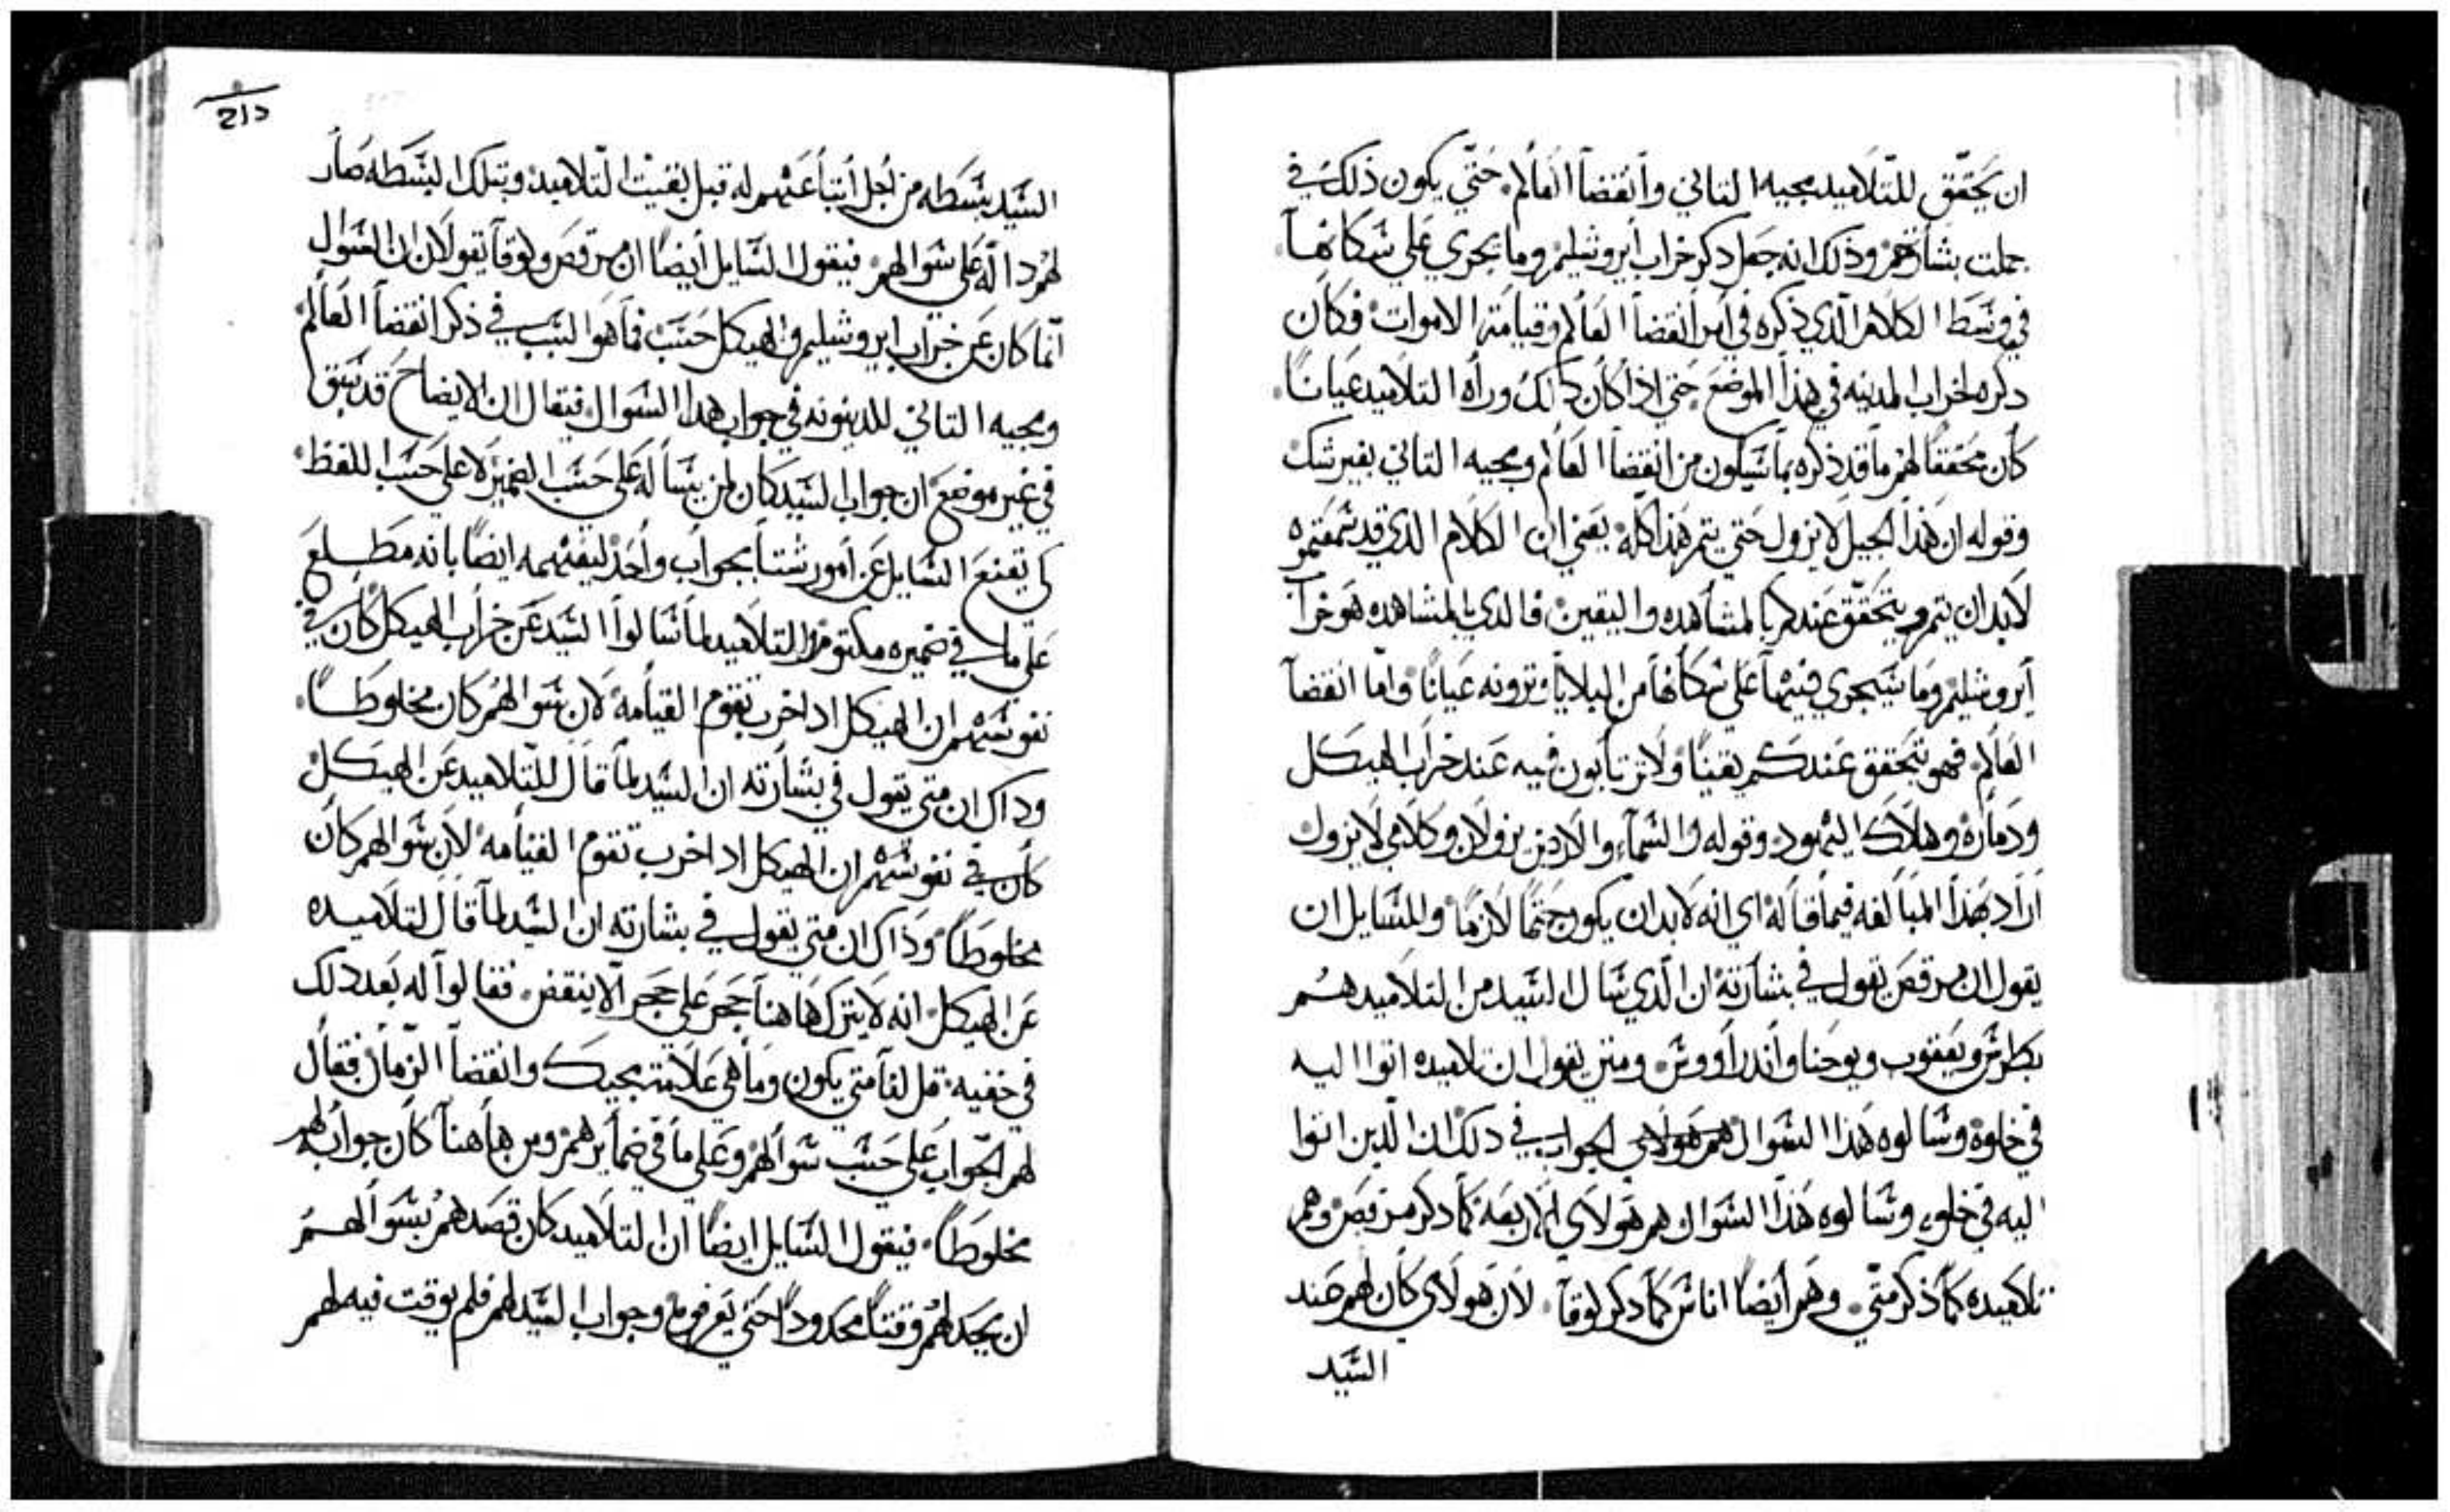 ان يحقق للتلاميد مجيه التاني وانقضا العالم. حتي يكون ذلك في
جملت بشارتهم وذلك انه جعل دكر خراب ايروشليم وما يجري علي سكانها.
في وسط الكلام الذي ذكره في امر انقضا العالم وقيامة الاموات فكان
دكره لخراب المدينه في هذا الموضع حتي اذا كان دلك وراه التلاميد عيانا.
كان محققا لهم ما قد ذكره بما سيكون من انقضا العالم ومجيه التاني بغير شك
وقوله ان هذا الجيل لا يزول حتي يتم هذا كله يعني ان الكلام الدي قد سمعتموه
لابدان يتم ويتحقق عندكم بالمشاهده واليقين فالدي بالمشاهده هو خراب
ايروشليم وما سيجري فيها علي سكانها من البلايا وترونه عيانا واما انقضا
العالم. فهو يتحقق عندكم يقينا ولا ترتابون فيه عند خراب الهيكل
ودماره وهلاك اليهود وقوله ان السماء والارض يزولان وكلامي لا يزول
اراد بهذا المبالغه فيما قاله اي انه لابدان يكون حتما لازما وللسايل ان
يقول ان مرقص يقول في بشارته ان الذي سال السيد من التلاميد هم
بطرس ويعقوب ويوحنا واندراووس ومتي يقول ان تلاميده اتوا اليه
في خلوة وسالوه هذا السوال هم هولاي الجواب في دلك ان الدين اتوا
اليه في خلوه وسالوه هذا السوال هم هولاي الاربعة كما دكر مرقص وهم
تلاميده كما ذكر متي. وهم ايضا اناس كما دكر لوقا. لان هولاي كان لهم عند
السيد
السيد بسطه من اجل اتباعهم له قبل بقيت التلاميد وبتلك البسطه صار
لهم دالة علي سوالهم فيقول السايل ايضا ان مرقص ولوقا يقولان ان السوال
انما كان عن خراب ايروشليم والهيكل حسب فما هو السبب في ذكر انقضا العالم
ومجيه التاني للدينونه في جواب هدا السوال فيقال ان الايضاح قد سبق
في غير موضع ان جواب السيد كان لمن يسأله علي حسب الضمير لا علي حسب اللفظ
كي يقنع السايل عن امور شتا بجواب واحد ليفهمه ايضا بانه مطلع
علي ما في ضميره مكتوم والتلاميد لما سالوا السيد عن خراب الهيكل كان في
نفوسهم ان الهيكل ادا خرب تقوم القيامه لان سوالهم كان مخلوطا.
وداك ان متي يقول في بشارته ان السيد لما قال للتلاميد عن الهيكل
كان في نفوسهم ان الهيكل ادا خرب تقوم القيامه لان سوالهم كان
مخلوطا وذاك ان متي يقول في بشارته ان السيد لما قال لتلاميده
عن الهيكل انه لا يترك هاهنا حجر علي حجر الا ينقض. فقالوا له بعد دلك
في خفيه قل لنا متي يكون وما هي علامة مجيك وانقضا الزمان فقال
لهم الجواب علي حسب سوالهم وعلي ما في ضمايرهم ومن هاهنا كان جوابه لهم
مخلوطا. فيقول السايل ايضا ان التلاميد كان قصدهم بسوالهم
ان يحد لهم وقتا محدودا حتي يعرفوه وجواب السيد لهم فلم يوقت فيه لهم